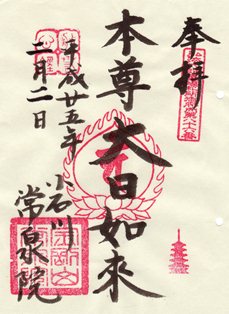 奉拝
本尊 大日如來
平成廿五年
二月二日
小石川
常泉院